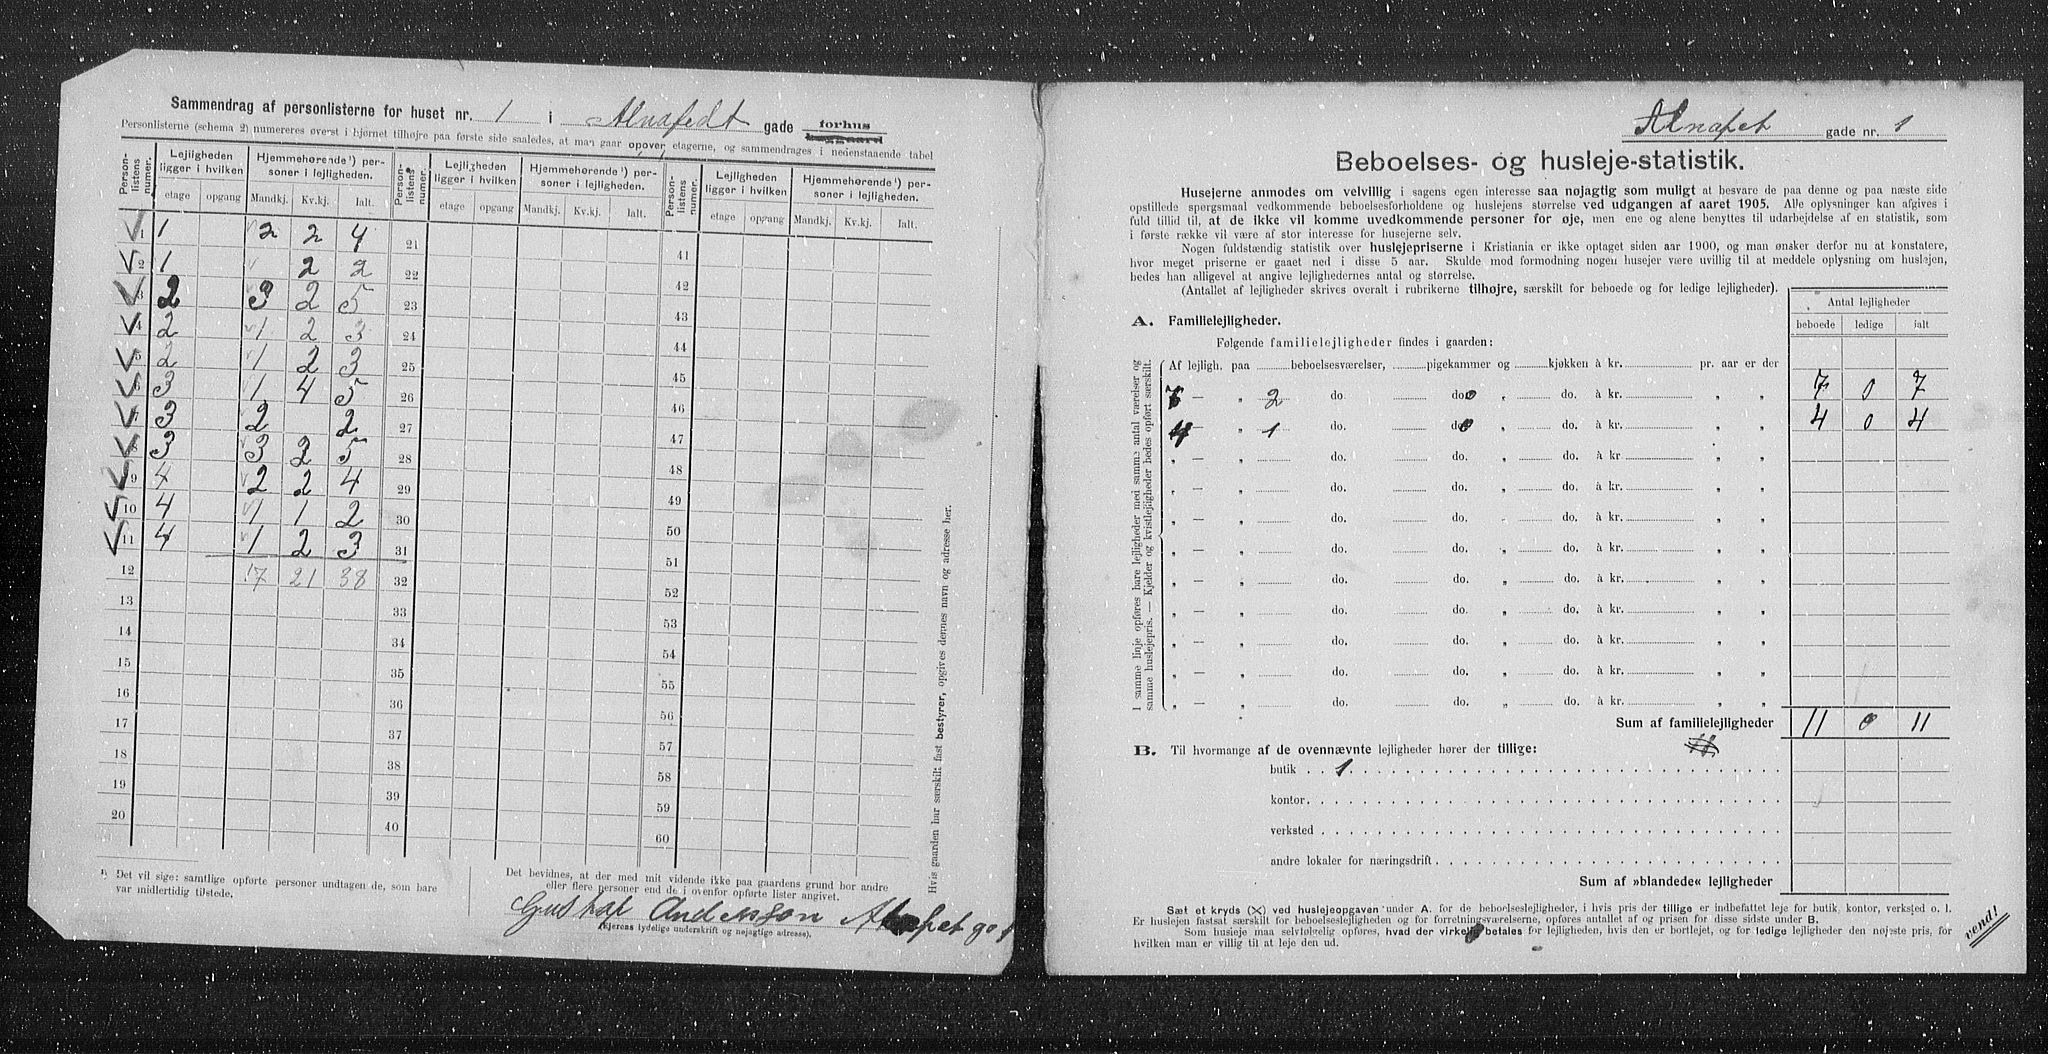 Sammendrag af personlisterne for huset nr. 1 i Alnafedt gade forhus
Personlisterne (schema 2) numereres øverst i hjørnet tilhøjre paa første side saaledes, at man gaar opover etagerne, og sammendrages i nedenstaaende tabel
Person-listens nummer. Lejligheden ligger i hvilken Hjemmehørende¹) personer i lejligheden. Person-listens numer. Lejligheden ligger i hvilken Hjemmehørende¹) personer i lejligheden. Person-listens numer. Lejligheden ligger i hvilken Hjemmehørende¹) personer i lejligheden.
etage opgang Mandkj. Kv.kj. Ialt. etage opgang Mandkj. Kv.kj. Ialt. etage opgang Mandkj. Kv.kj. Ialt.
1 1 2 2 4 21 41
2 1 2 2 22 42
3 2 3 2 5 23 43
4 2 1 2 3 24 44
5 2 1 2 3 25 45
6 3 1 4 5 26 46
7 3 2 2 27 47
8 3 3 2 5 28 48
9 4 2 2 4 29 49
10 4 1 1 2 30 50
11 4 1 2 3 31 51
12 17 21 38 32 52
13 33 53
14 34 54
15 35 55
16 36 56
17 37 57
18 38 58
19 39 59
20 40 60
Hvis gaarden har særskilt fast bestyrer, opgives dennes navn og adresse her.
¹) Det vil sige: samtlige opførte personer undtagen de, som bare
var midlertidig tilstede.
Det bevidnes, at der med mit vidende ikke paa gaardens grund bor andre
eller flere personer end de i ovenfor opførte lister angivet.
Gustaf Andersson Alnafet g. 1
(Ejerens tydelige underskrift og nøjagtige adresse).
Alnafet gade nr. 1
Beboelses- og husleje-statistik.
Husejerne anmodes om velvillig i sagens egen interesse saa nøjagtig som muligt at besvare de paa denne og paa næste side
opstillede spørgsmaal vedkommende beboelsesforholdene og huslejens størrelse ved udgangen af aaret 1905. Alle oplysninger kan afgives i
fuld tillid til, at de ikke vil komme uvedkommende personer for øje, men ene og alene benyttes til udarbejdelse af en statistik, som
i første række vil være af stor interesse for husejerne selv.
Nogen fuldstændig statistik over huslejepriserne i Kristiania er ikke optaget siden aar 1900, og man ønsker derfor nu at konstatere,
hvor meget priserne er gaaet ned i disse 5 aar. Skulde mod formodning nogen husejer være uvillig til at meddele oplysning om huslejen,
bedes han alligevel at angive lejlighedernes antal og størrelse.
(Antallet af lejligheder skrives overalt i rubrikerne tilhøjre, særskilt for beboede og for ledige lejligheder).
Antal lejligheder
beboede ledige ialt
A. Familielejligheder.
Følgende familielejligheder findes i gaarden:
I samme linje opføres bare lejligheder med samme antal værelser og
samme huslejepris. — Kjelder og kvistlejligheder bedes opført særskilt.
Af lejligh. paa beboelsesværelser, pigekammer og kjøkken à kr. pr. aar er der
7 — „ 2 do. do. 0 „ do. à kr. „ „ 7 0 7
4 — „ 1 do. do. 0 „ do. à kr. „ „ 4 0 4
„ — „ do. do. „ do. à kr. „ „
„ — „ do. do. „ do. à kr. „ „
„ — „ do. do. „ do. à kr. „ „
„ — „ do. do. „ do. à kr. „ „
„ — „ do. do. „ do. à kr. „ „
„ — „ do. do. „ do. à kr. „ „
„ — „ do. do. „ do. à kr. „ „
„ — „ do. do. „ do. à kr. „ „
„ — „ do. do. „ do. à kr. „ „
Sum af familielejligheder 11 0 11
B. Til hvormange af de ovennævnte lejligheder hører der tillige:
butik 1
kontor
verksted
andre lokaler for næringsdrift
Sum af »blandede« lejligheder
Sæt et kryds (X) ved huslejeopgaven under A. for de beboelseslejligheder, i hvis pris der tillige er indbefattet leje for butik, kontor, verksted o. l.
Er huslejen fastsat særskilt for beboelseslejligheden og for forretningsværelserne, opføres antallet af og prisen for disse sidste under B.
Som husleje maa selvfølgelig opføres, hvad der virkelig betales for lejligheden, hvis den er bortlejet, og for ledige lejligheder den nøjeste pris, for
hvilken man er villig til at leje den ud.
vend!